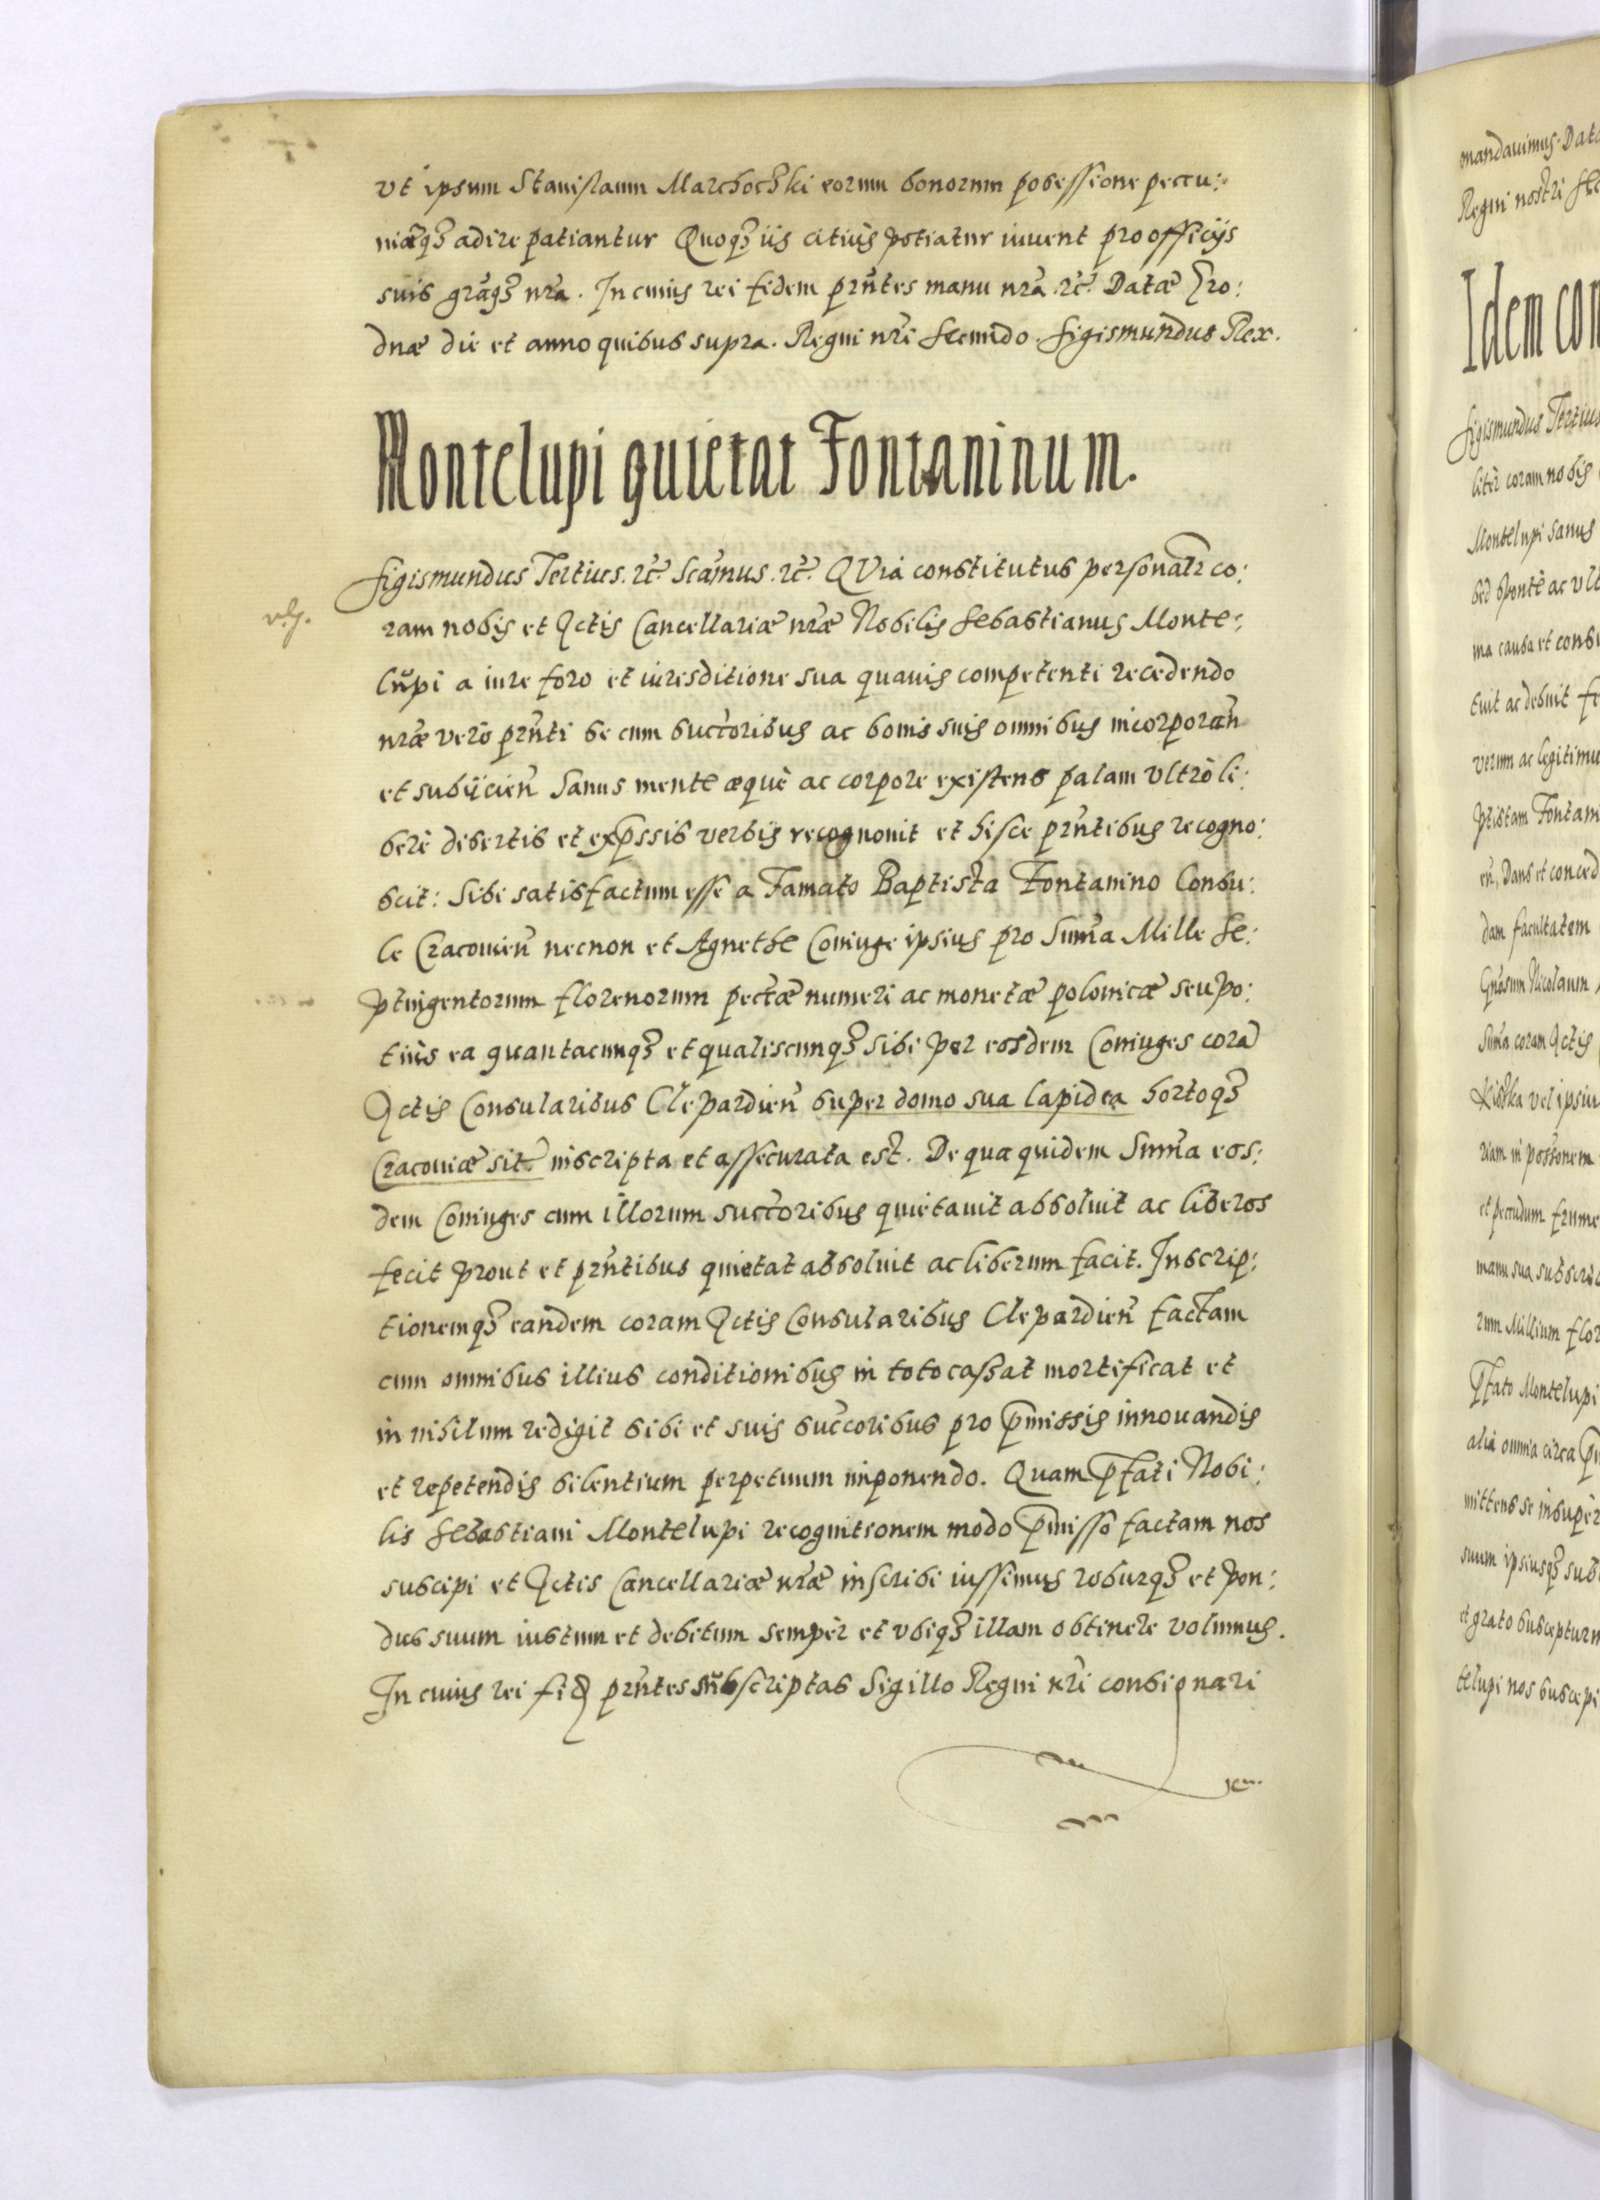 vt ipsum Stanislaum Marchochki eorum bonorum possessione pecu:
niaq3 adire patiantur Quoq3 iis citius potiatur iuuent pro officijs
suis grãq3 nrã. In cuius rei fidem prñtes manu nrã rc̃. Datæ Gro:
dnæ die et anno quibus supra. Regni nrĩ Secundo. Sigismundus Rex.
Montelupi quietat Fontaninum.
Sigismundus Tertius. rc̃. Scãmus. rc̃. QVia constitutus personalr̃ co:
ram nobis et Actis Cancellariæ nrǣ Nobilis Sebastianus Monte:
lupi a iure foro et iuresditione sua quauis competenti recedendo
nrǣ verò prñti se cum succ̃oribus ac bonis suis omnibus incorporañ
et subijcieñ Sanus mente æquè ac corpore existens palam vltrò li:
berè disertis et exp̃ssis verbis recognouit et hisce prñtibus recogno:
scit: Sibi satisfactum esse a Famato Baptista Fontanino Consu:
le Cracouieñ necnon et Agnethe Coniuge ipsius pro Sum̃a Mille Se:
ptingentorum florenorum pec̃tæ numeri ac monetæ polonicæ seu po:
tiùs ea quantacunq3 et qualiscunq3 sibi per eosdem Coniuges corã
Actis Consularibus Clepardieñ super domo sua lapidea hortoq3
Cracouiæ sit̃ inscripta et assecurata est. De qua quidem Sum̃a eos:
dem Coniuges cum illorum succ̃oribus quietauit absoluit ac liberos
fecit prout et prñtibus quietat absoluit ac liberum facit. Inscrip:
tionemq3 eandem coram Actis Consularibus Clepardieñ factam
cum omnibus illius conditionibus in toto cassat mortificat et
in nihilum redigit sibi et suis succ̃oribus pro p̃missis innouandis
et repetendis silentium perpetuum imponendo. Quam p̃fati Nobi:
lis Sebastiani Montelupi recognitionem modo p̃misso factam nos
suscipi et Actis Cancellariæ nrǣ inscribi iussimus roburq3 et pon:
dus suum iustum et debitum semper et vbiq3 illam obtinere volumus.
In cuius rei fid prñtes subscriptas Sigillo Regni nrĩ consignari
mandauimus. Dat
Regni nostri
Idem con
Sigismundus Tertius
litẽr coram nobis
Montelupi Sanus
sed spontè ac vlt
ma causa et cons
tuit ac debuit
verum ac legitimu
ptistam Fontani
eñ, Dans et conced
dam facultatem
Gñosum Nicolaum
Sum̃a coram Actis
Kiska vel ipsiu
riam in poss̃ionem
et pecudum frume
manu sua subscri
rum Millium flor
P̃fato Montelupi
alia omnia circa
mittens se insuper
suum ipsiusq3 sub
et grato suscepturu
telupi nos suscepi